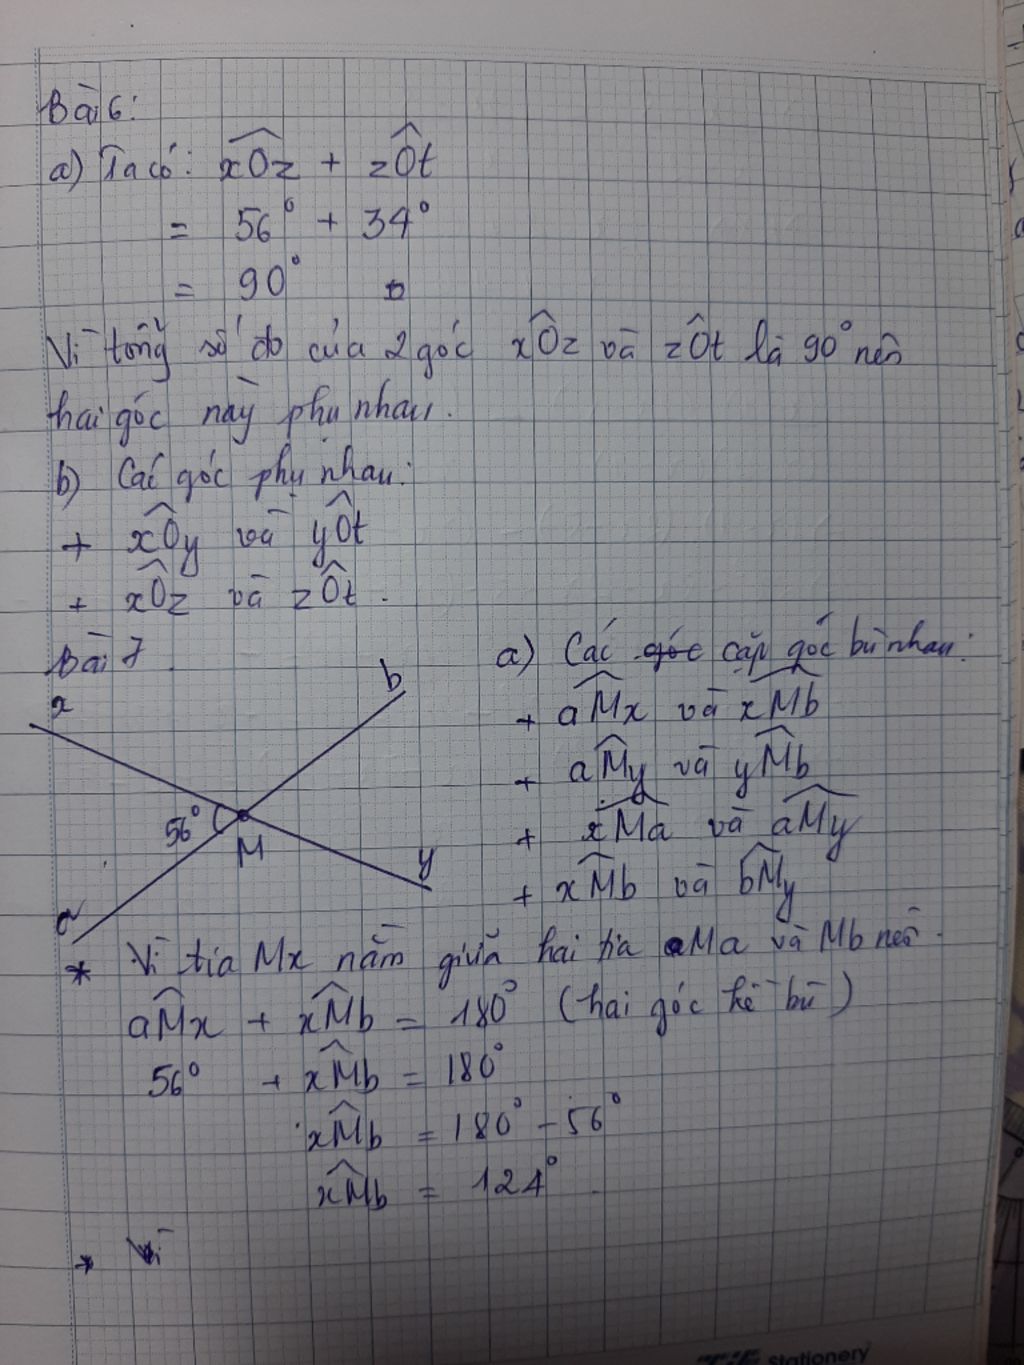 Bài 6:
a) Ta có: xÔz + zÔt
= 56° + 34°
= 90°
Vì tổng số đo của 2 góc xÔz và zÔt là 90° nên
hai góc này phụ nhau.
b) Các góc phụ nhau:
+ xÔy và yÔt
+ xÔz và zÔt.
Bài 7
x
b
56°
M
y
a
a) Các góc cặp góc bù nhau:
+ aM̂x và xM̂b
+ aM̂y và yM̂b
+ xM̂a và aM̂y
+ xM̂b và bM̂y
* Vì tia Mx nằm giữa hai tia Ma và Mb nên
aM̂x + xM̂b = 180° (hai góc kề bù)
56° + xM̂b = 180°
xM̂b = 180° - 56°
xM̂b = 124°.
* Vì
stationery